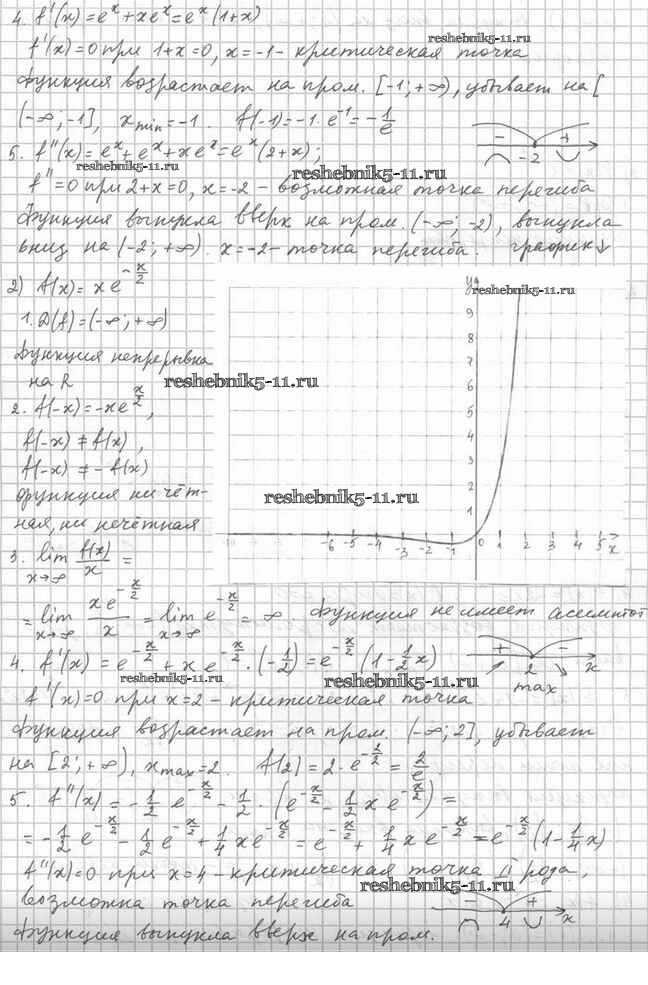 4. f'(x) = e^x + xe^x = e^x (1+x)
f'(x) = 0 при 1+x = 0, x = -1 - критическая точка
reshebnik5-11.ru
функция возрастает на пром. [-1; +∞), убывает на [
(-∞; -1], x min = -1. f(-1) = -1·e^-1 = -1/e
- + -2
5. f''(x) = e^x + e^x + xe^x = e^x (2+x);
reshebnik5-11.ru reshebnik5-11.ru
f'' = 0 при 2+x = 0, x = -2 - возможная точка перегиба
Функция выпукла вверх на пром. (-∞; -2), выпукла
вниз на (-2; +∞). x = -2 - точка перегиба. график ↓
2) f(x) = xe^(-x/2)
1. D(f) = (-∞; +∞)
функция непрерывна
на R
2. f(-x) = -xe^(x/2),
f(-x) ≠ f(x),
f(-x) ≠ -f(x)
функция ни чёт-
ная, ни нечётная
y
reshebnik5-11.ru
9
8
7
6
5
4
3
2
1
reshebnik5-11.ru
reshebnik5-11.ru
-6 -5 -4 -3 -2 -1 0 1 2 3 4 5 x
3. lim x→∞ f(x)/x =
= lim x→∞ xe^(-x/2)/x = lim x→∞ e^(-x/2) = ∞ функция не имеет асимптот
4. f'(x) = e^(-x/2) + xe^(-x/2)·(-1/2) = e^(-x/2) (1 - 1/2 x)
+ - 2 x
max
reshebnik5-11.ru reshebnik5-11.ru
f'(x) = 0 при x = 2 - критическая точка
функция возрастает на пром. (-∞; 2], убывает
reshebnik5-11.ru
на [2; +∞), x max = 2. f(2) = 2·e^(-1/2) = 2/e.
5. f''(x) = -1/2 e^(-x/2) - 1/2·(e^(-x/2) - 1/2 xe^(-x/2)) =
= -1/2 e^(-x/2) - 1/2 e^(-x/2) + 1/4 xe^(-x/2) = e^(-x/2) + 1/4 xe^(-x/2) = e^(-x/2) (1 - 1/4 x)
f''(x) = 0 при x = 4 - критическая точка II рода,
reshebnik5-11.ru
возможна точка перегиба
- + 4 x
reshebnik5-11.ru
функция выпукла вверх на пром.